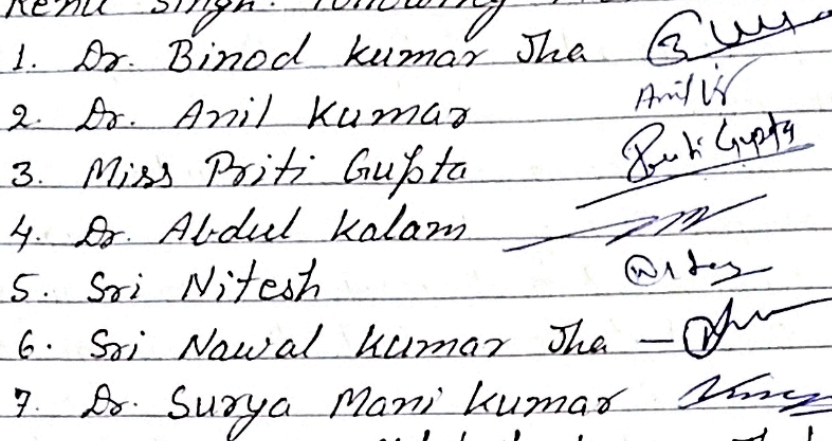 Renu Singh. following
1. Dr. Binod Kumar Jha
2. Dr. Anil Kumar Anil Kr
3. Miss Priti Gupta Priti Gupta
4. Dr. Abdul Kalam
5. Sri Nitesh Nitesh
6. Sri Nawal Kumar Jha –
7. Dr. Surya Mani Kumar